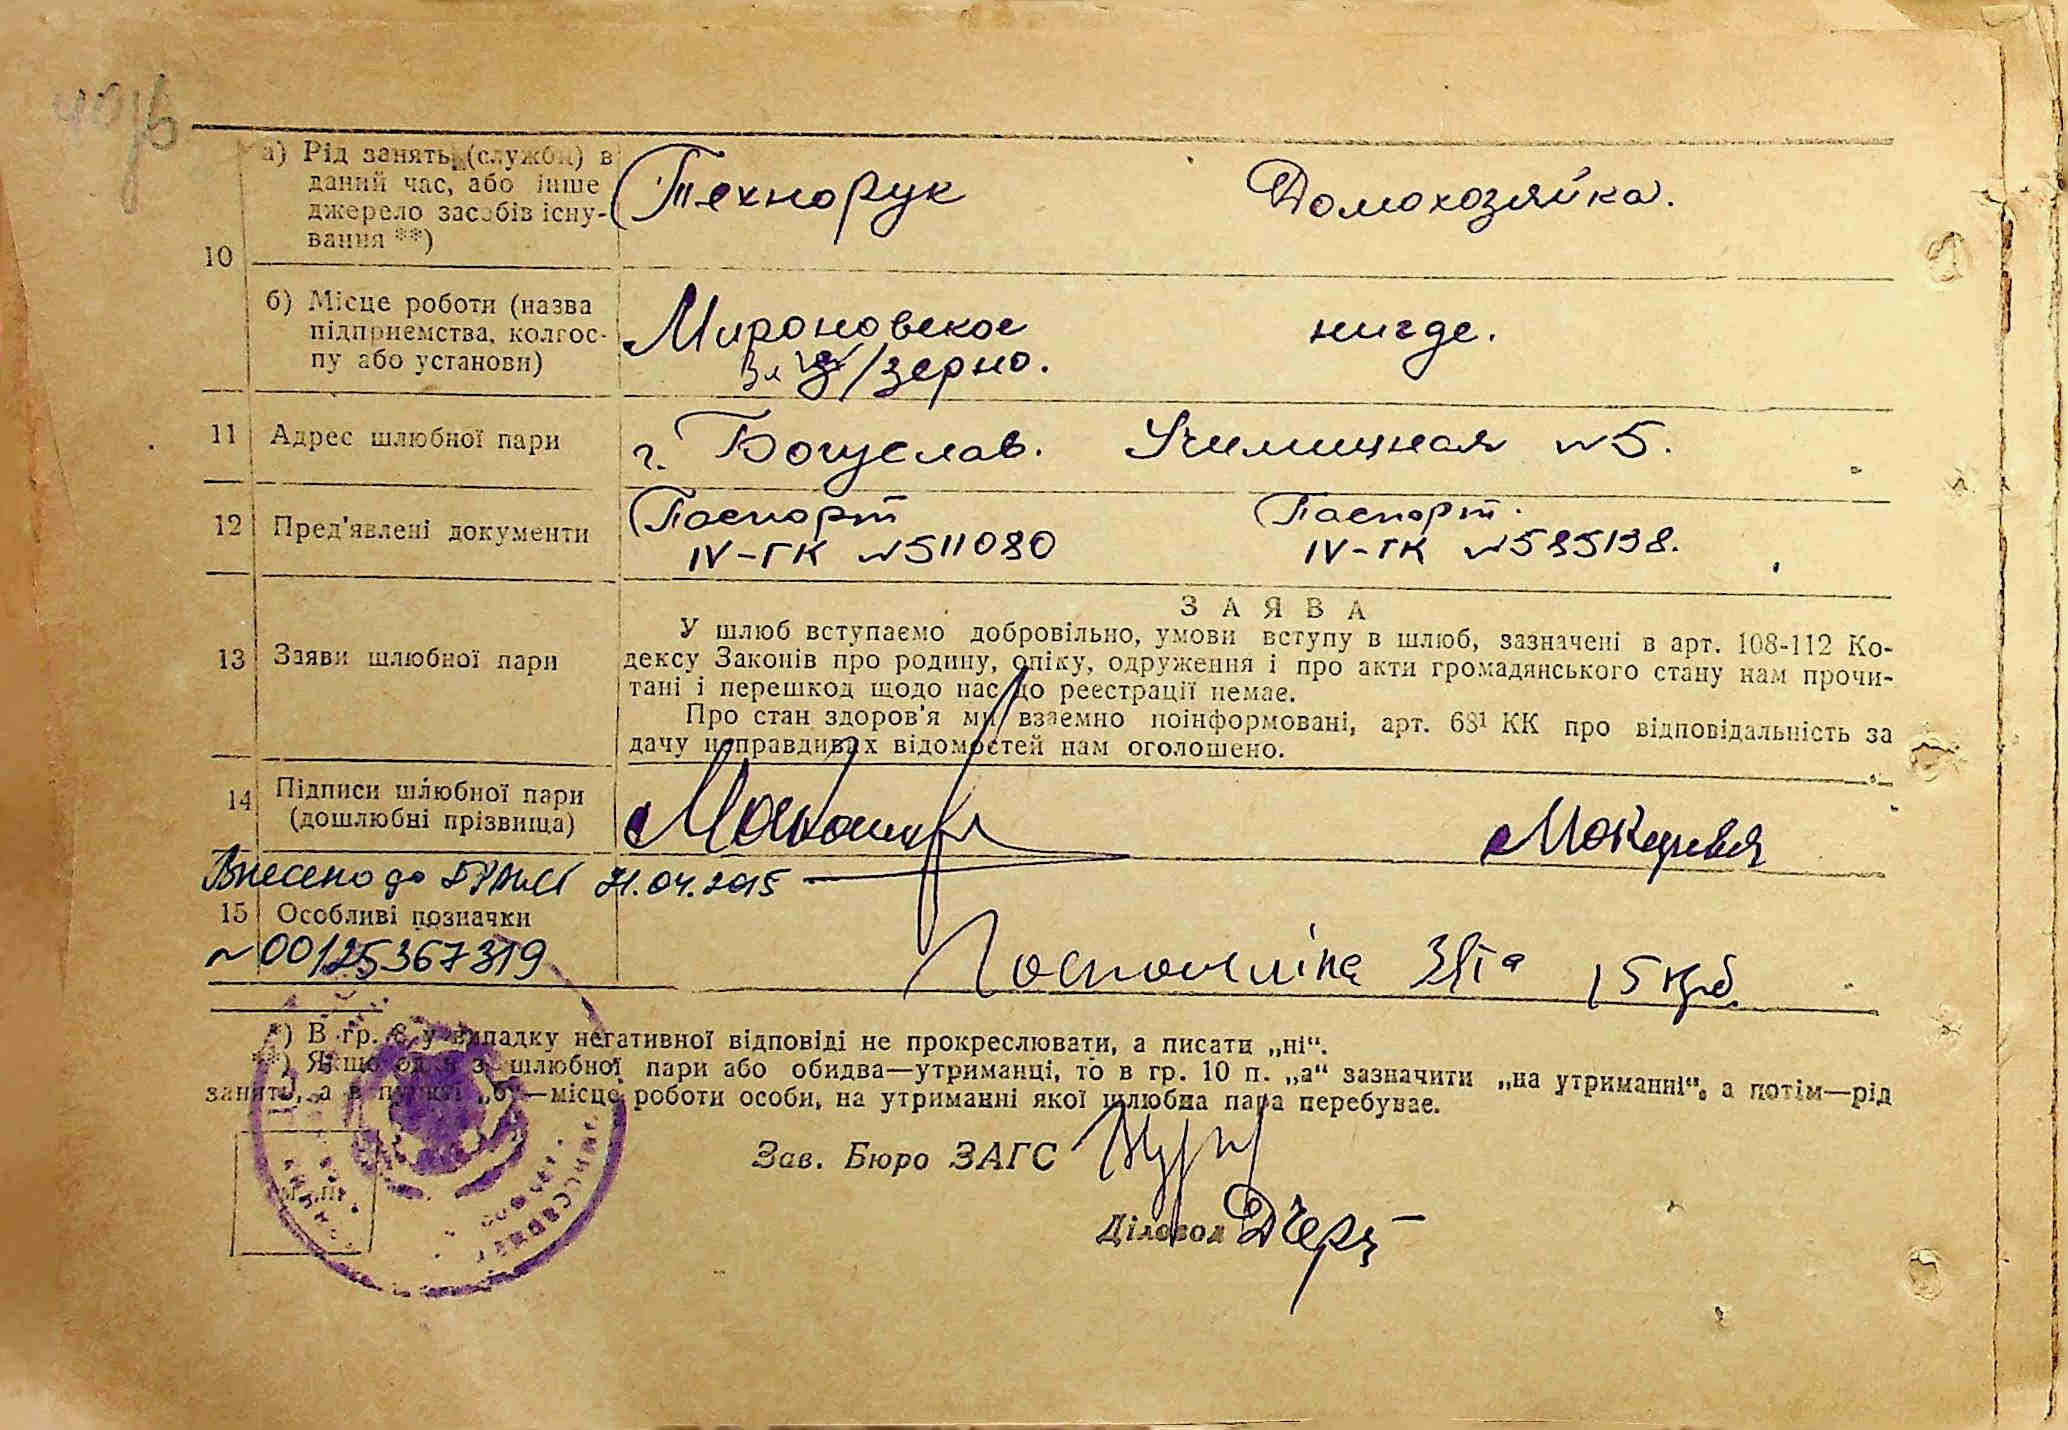 а) Рід занять (служби) в
даний час, або інше
джерело засобів існу-
вання **)
Технорук
Домохозяйка.
10
б) Місце роботи (назва
підприємства, колгос-
пу або установи)
Мироновское
/зерно.
нигде.
11 Адрес шлюбної пари
г. Богуслав. Училищная №5.
12 Пред'явлені документи
Паспорт
IV-ГК №511080
Паспорт.
IV-ГК №585138.
13 Заяви шлюбної пари
ЗАЯВА
У шлюб вступаємо добровільно, умови вступу в шлюб, зазначені в арт. 108-112 Ко-
дексу Законів про родину, опіку, одруження і про акти громадянського стану нам прочи-
тані і перешкод щодо нас до реєстрації немає.
Про стан здоров'я ми взаємно поінформовані, арт. 68¹ КК про відповідальність за
дачу неправдивих відомостей нам оголошено.
14 Підписи шлюбної пари
(дошлюбні прізвища)
Внесено до ДРАЦС 21.04.2015
15 Особливі позначки
№00125367319
15 крб.
*) В гр. 6 у випадку негативної відповіді не прокреслювати, а писати „ні“.
**) Якщо один з шлюбної пари або обидва—утриманці, то в гр. 10 п. „а“ зазначити „на утриманні“, а потім—рід
занять, а в пункті „б“—місце роботи особи, на утриманні якої шлюбна пара перебуває.
Зав. Бюро ЗАГС
Діловод
М. П.